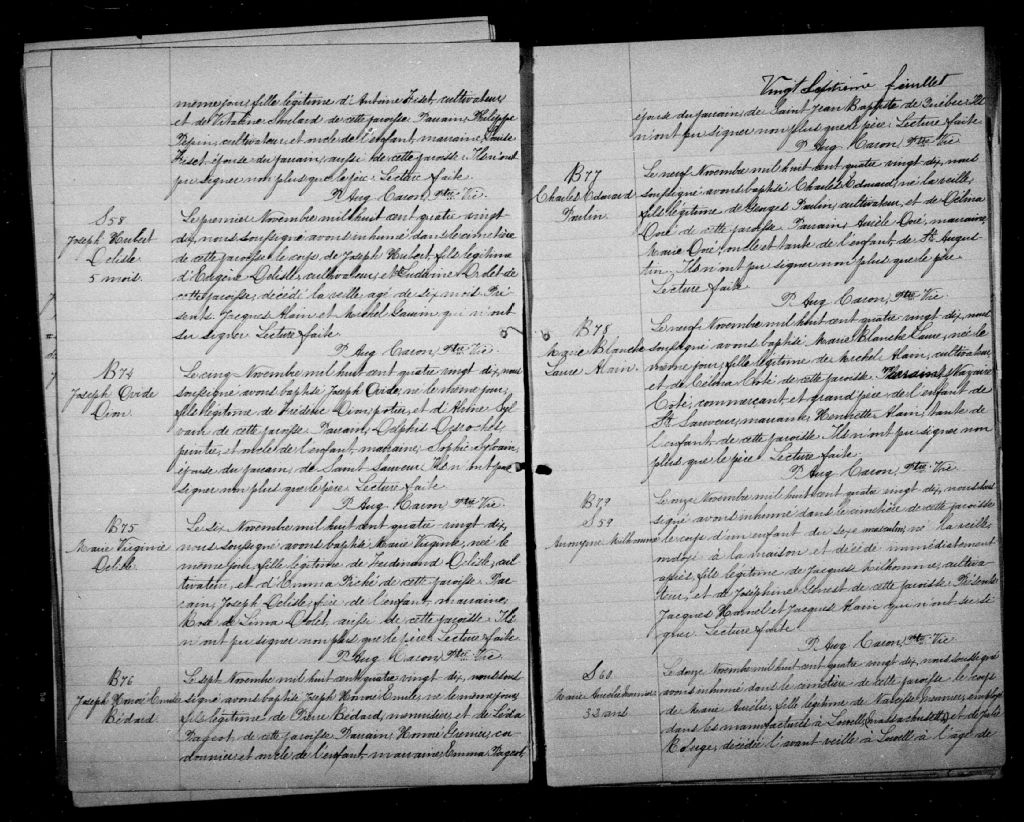 même jour, fille légitime d'Antoine Fiset, cultivateur
et de Vitaline de cette paroisse. Parrain, Philippe
Pepin, cultivateur, et oncle de l'enfant, marraine, Louise
Fiset, épouse du parrain, aussi de cette paroisse. Ils n'ont
pu signer non plus que le père. Lecture faite
P. Aug. Caron, Ptre Vic.
S58
Joseph Hubert
Delisle
5 mois
Le premier Novembre mil huit cent quatre vingt
dix, nous soussigné avons inhumé dans le cimetière
de cette paroisse le corps de Joseph Hubert, fils légitime
d' Delisle, cultivateur, et Drolet de
cette paroisse, décédé la veille agé de six mois. Pré
sents: Jacques Alain et Michel qui n'ont
su signer. Lecture faite
P. Aug. Caron, Ptre Vic.
B74
Joseph Ovide
Dion
Le cinq Novembre mil huit cent quatre vingt dix, nous
soussigné avons baptisé Joseph Ovide, né le même jour,
fils légitime de Fréderic Dion, potier, et d' Syl
vain de cette paroisse. Parrain, Delphis Desroches,
peintre, et oncle de l'enfant, marraine, Sophie Sylvain,
épouse du parrain, de Saint Sauveur. Ils n'ont pas
signer non plus que le père. Lecture faite
P. Aug. Caron, Ptre Vic.
B75
Marie Virginie
Delisle
Le six Novembre mil huit cent quatre vingt dix,
nous soussigné avons baptisé Marie Virginie, née le
même jour, fille légitime de Ferdinand Delisle, cul
tivateur, et d'Emma Piché de cette paroisse. Par
rain, Joseph Delisle, frère de l'enfant, marraine,
Rose de Lima Drolet, aussi de cette paroisse. Ils
n'ont pu signer non plus que le père. Lecture faite
P. Aug. Caron, Ptre Vic.
B76
Joseph Honoré Emile
Bédard
Le sept Novembre mil huit cent quatre vingt dix, nous sous
signé avons baptisé Joseph Honoré Emile, né le même jour,
fils légitime de Pierre Bédard, menuisier, et de Léda
Pageot, de cette paroisse. Parrain, Honoré Grenier, cor
donnier, et oncle de l'enfant, marraine, Emma Pageot,
Vingt Septième feuillet
épouse du parrain, de Saint Jean Baptiste de Québec. Ils
n'ont pu signer non plus que le père. Lecture faite
P. Aug. Caron, Ptre Vic.
B77
Charles Edouard
Paulin
Le neuf Novembre mil huit cent quatre vingt dix, nous
soussigné avons baptisé Charles Edouard, né la veille,
fils légitime de Georges Paulin, cultivateur, et de Célima
de cette paroisse. Parrain, marraine,
Marie oncle et tante de l'enfant, de St Augus
tin. Ils n'ont pu signer non plus que le père
Lecture faite
P. Aug. Caron, Ptre Vic.
B78
Marie Blanche
Laure Alain
Le neuf Novembre mil huit cent quatre vingt dix, nous
soussigné avons baptisé Marie Blanche Laure, née le
même jour, fille légitime de Michel Alain, cultivateur,
et de Célina Coté de cette paroisse. Parrain, Nazaire
Coté, commerçant, et grand père de l'enfant de
St Sauveur, marraine, Henriette Alain, tante de
l'enfant, de cette paroisse. Ils n'ont pu signer non
plus que le père. Lecture faite
P. Aug. Caron, Ptre Vic.
B79
S59
Anonyme Wilhomme
Le onze Novembre mil huit cent quatre vingt dix, nous sous
signé avons inhumé dans le cimetière de cette paroisse
le corps d'un enfant du sexe masculin, né la veille,
ondoyé à la maison et décédé immédiatement
après, fils légitime de Jacques Wilhomme, cultiva
teur, et de Joséphine de cette paroisse. Présents:
Jacques Hamel et Jacques Alain qui n'ont su si
gner. Lecture faite
P. Aug. Caron, Ptre Vic.
S60
Marie Aurélie
33 ans
Le douze Novembre mil huit cent quatre vingt dix, nous soussigné
avons inhumé dans le cimetière de cette paroisse le corps
de Marie Aurélie, fille légitime de Narcisse employé
dans les manufactures à Lowell (Massachusetts) et de Julie
décédée l'avant veille à Lowell à l'âge de